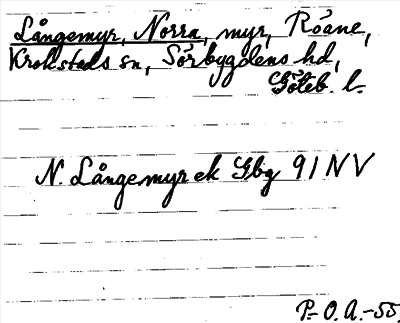 Långemyr, Norra, myr, Röane,
Krokstads sn, Sörbygdens hd,
Göteb. l.
N. Långemyr ek Gbg 91 NV
P.-O. A.-55.